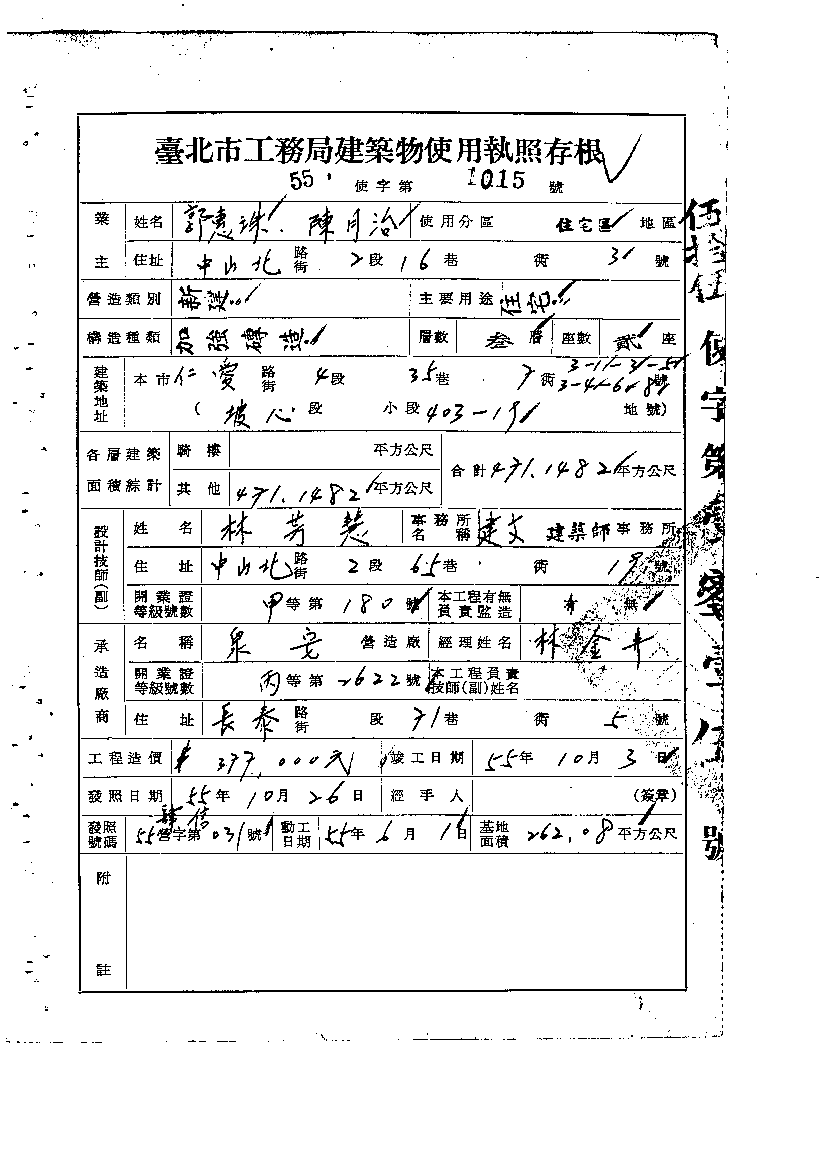 臺北市工務局建築物使用執照存根
55. 使字第 1015 號
業主 姓名 郭惠珠、陳月治 使用分區 住宅區 地區
住址 中山北 路街 2段 16巷 街 3 號
營造類別 新建 主要用途 住宅
構造種類 加強磚造 層數 叁層 座數 貳座
建築地址 本市 仁愛 路街 4段 35巷 7街 號
( 坡心 段 小段 403-19 地號)
各層建築面積綜計 騎樓 平方公尺 合計 471.1482 平方公尺
其他 471.1482 平方公尺
設計技師(副) 姓名 林芳慧 事務所名稱 建文 建築師事務所
住址 中山北 路街 2段 65巷 街 19 號
開業證等級號數 甲等第 180 號 本工程有無負責監造 有 無
承造廠商 名稱 泉安 營造廠 經理姓名 林金井
開業證等級號數 丙等第 2622 號 本工程負責技師(副)姓名
住址 長泰 路街 段 71巷 街 5 號
工程造價 377,000元 竣工日期 55年 10月 3日
發照日期 55年 10月 26日 經手人 (簽章)
發照號碼 55營字第 031 號 動工日期 55年 6月 1日 基地面積 262.08 平方公尺
附註
伍拾伍使字第壹零壹伍號